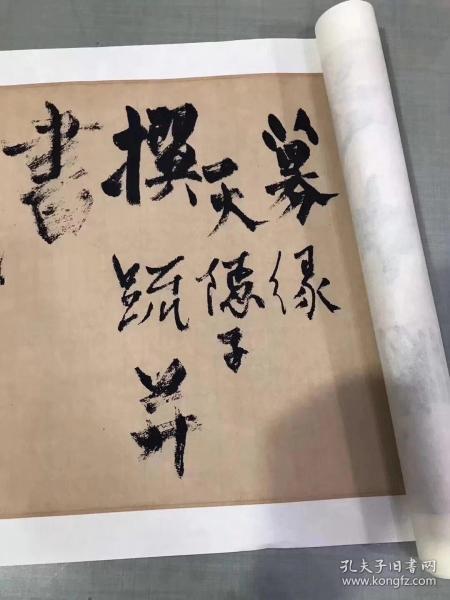 募緣
天隱子
撰疏并
書
孔夫子旧书网
www.kongfz.com